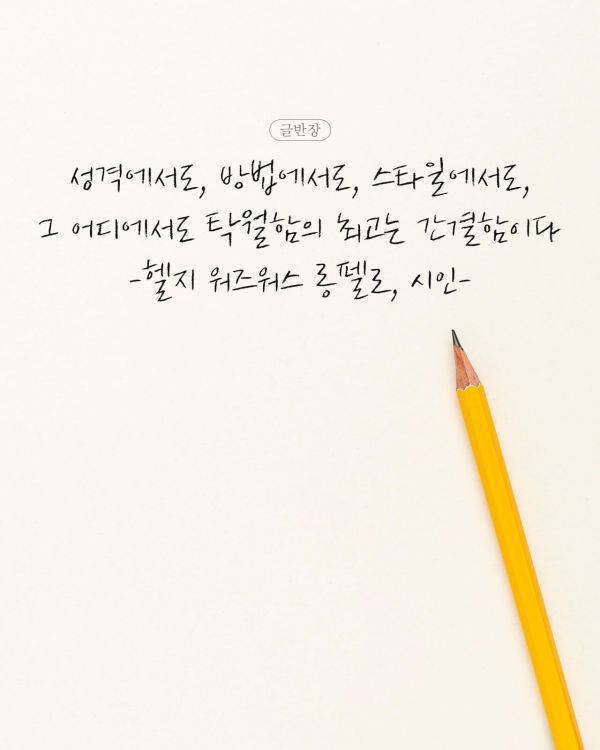 글반장
성격에서도, 방법에서도, 스타일에서도,
그 어디에서도 탁월함의 최고는 간결함이다
-헬지 워즈워스 롱펠로, 시인-